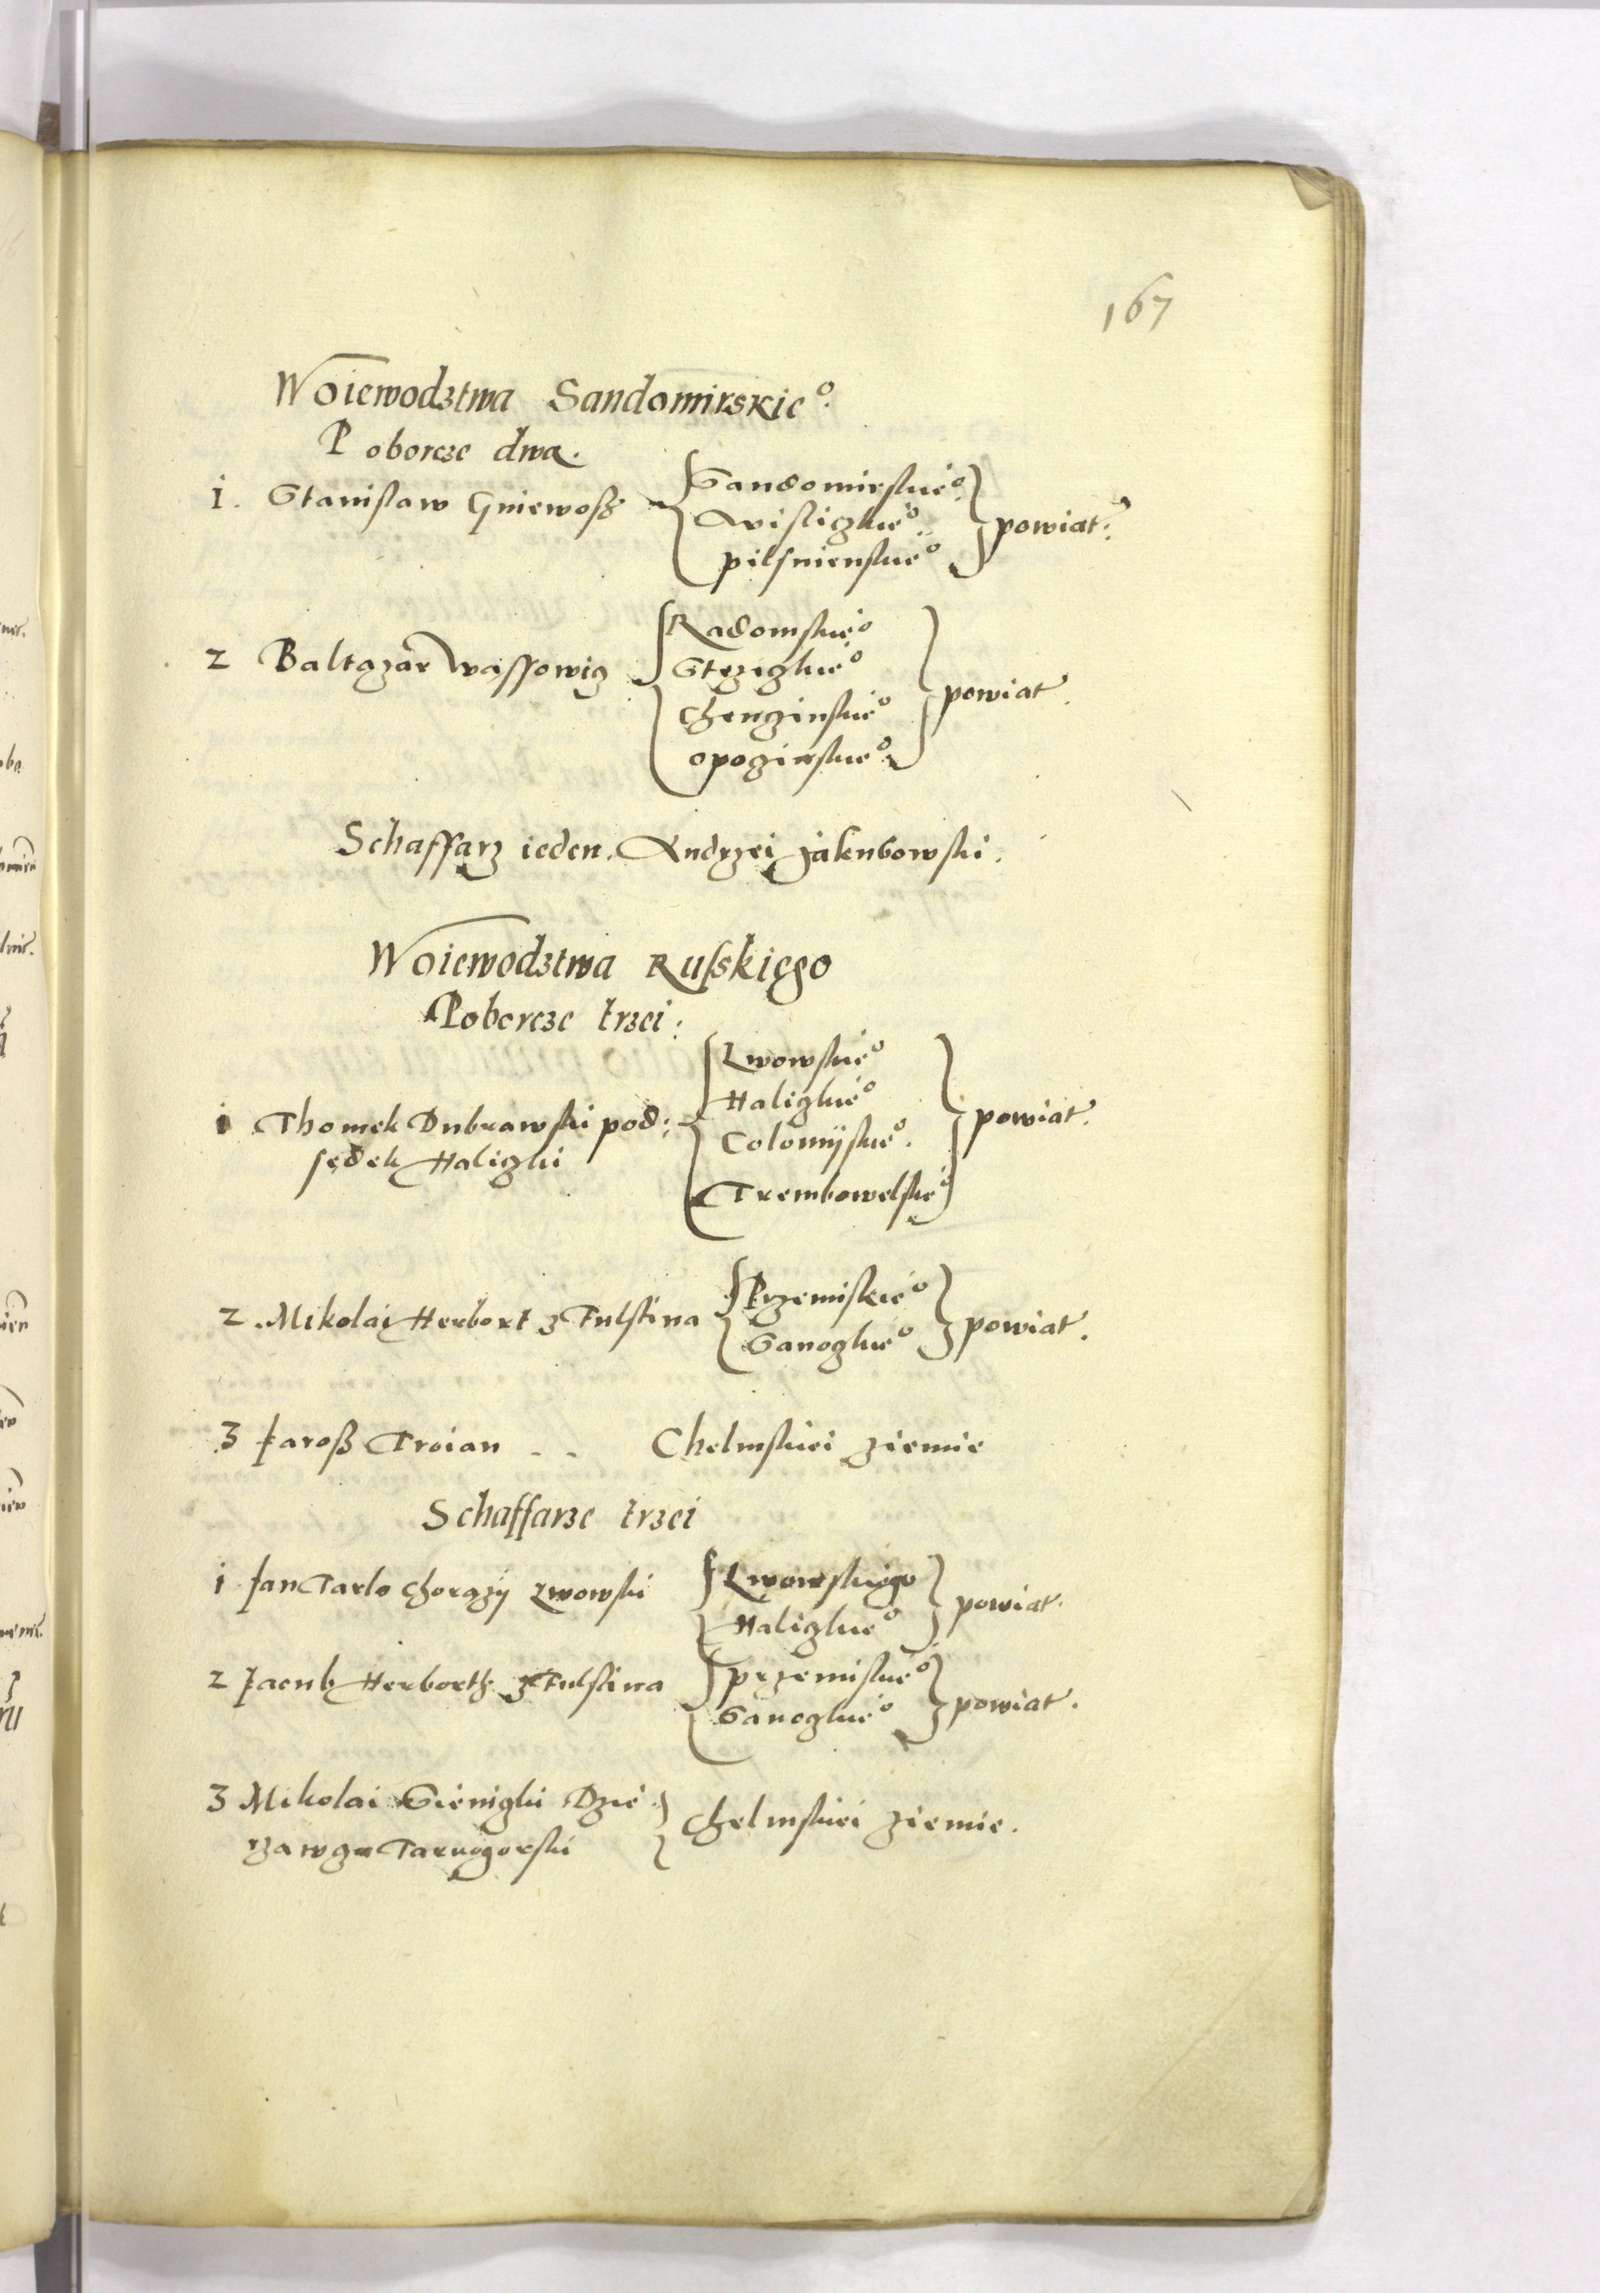 167
Woiewodztwa Sandomirskie°.
Poborcze dwa.
1. Stanislaw Gniewosz
Sandomirskie°
Wisliczkie°
pilsnienskie°
powiat:
2 Baltazar Wassowicz
Radomskie°
Stęziczkie°
Chenczinskie°
opoczinskie°
powiat.
Schaffarz ieden. Andrzei Jakubowski.
Woiewodztwa Ruskiego
Poborcze trzei:
1 Thomek Dubrawski pod:
sędek Haliczki
Lwowskie°
Haliczkie°
Colomijskie°.
Trembowelskie°
powiat.
2. Mikolai Herbort z Fulstina
Przemiskie°
Sanoczkie°
powiat.
3 Jarosz Troian - - Chelmskiei ziemie
Schaffarze trzei
1 Jan Tarlo Chorązij Lwowski
Lwowskiego
Haliczkie°
powiat.
2 Jacub Herborth z Fulstina
przemiskie°
Sanoczkie°
powiat.
3 Mikolai Sieniczki Dzie
rzawcza Tarnogorski
Chelmskiei ziemie.